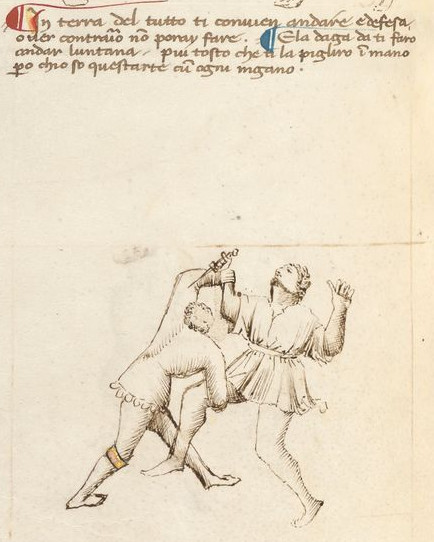 In terra del tutto ti convien andare e defesa
over contrario nō poray fare. Ela daga da ti faro
andar luntana, piu tosto che ti la pigluro ī mano
po chio so questarte cū ogni ingano.